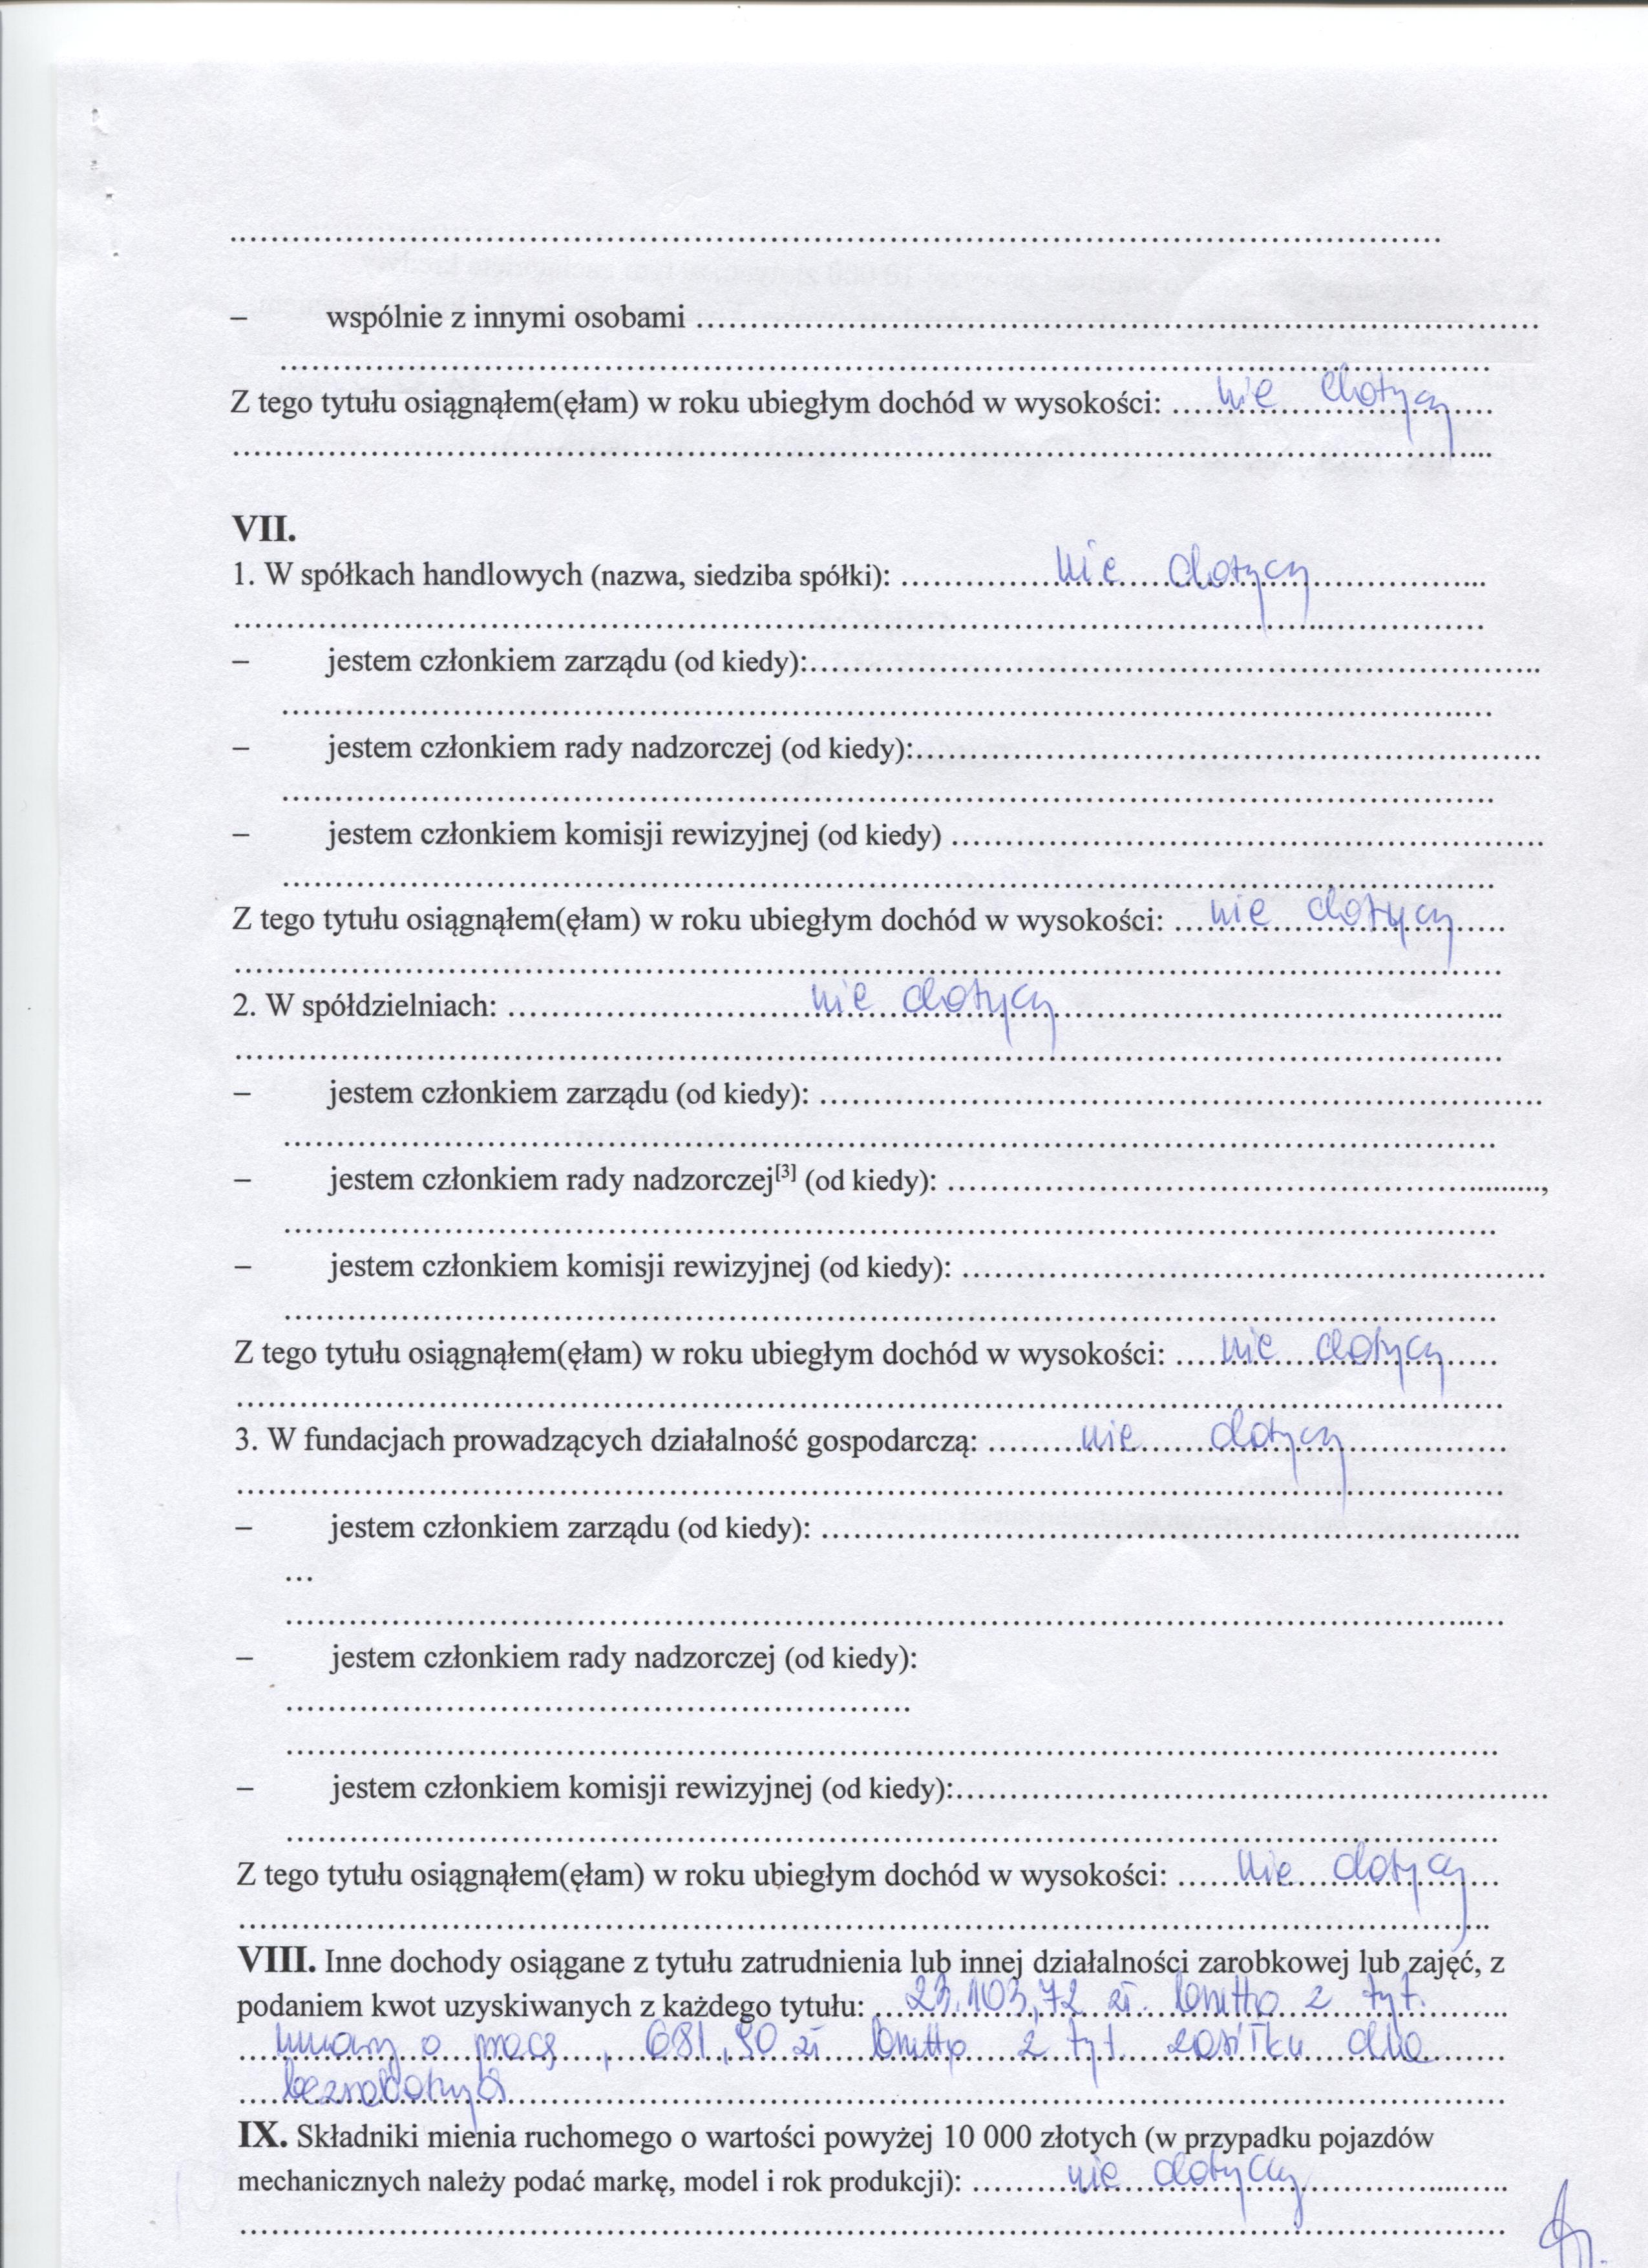 ................................................................
– wspólnie z innymi osobami ................................................................
................................................................
Z tego tytułu osiągnąłem(ęłam) w roku ubiegłym dochód w wysokości: ..... nie dotyczy .....
................................................................
VII.
1. W spółkach handlowych (nazwa, siedziba spółki): ............ nie dotyczy ............
................................................................
– jestem członkiem zarządu (od kiedy):................................................................
................................................................
– jestem członkiem rady nadzorczej (od kiedy):................................................................
................................................................
– jestem członkiem komisji rewizyjnej (od kiedy) ................................................................
................................................................
Z tego tytułu osiągnąłem(ęłam) w roku ubiegłym dochód w wysokości: ..... nie dotyczy .....
................................................................
2. W spółdzielniach: ............ nie dotyczy ............
................................................................
– jestem członkiem zarządu (od kiedy): ................................................................
................................................................
– jestem członkiem rady nadzorczej[3] (od kiedy): ................................................................,
................................................................
– jestem członkiem komisji rewizyjnej (od kiedy): ................................................................
................................................................
Z tego tytułu osiągnąłem(ęłam) w roku ubiegłym dochód w wysokości: ..... nie dotyczy .....
................................................................
3. W fundacjach prowadzących działalność gospodarczą: ......... nie dotyczy ............
................................................................
– jestem członkiem zarządu (od kiedy): ................................................................
...
................................................................
– jestem członkiem rady nadzorczej (od kiedy):
................................................
................................................................
– jestem członkiem komisji rewizyjnej (od kiedy):................................................................
................................................................
Z tego tytułu osiągnąłem(ęłam) w roku ubiegłym dochód w wysokości: ..... nie dotyczy .....
................................................................
VIII. Inne dochody osiągane z tytułu zatrudnienia lub innej działalności zarobkowej lub zajęć, z
podaniem kwot uzyskiwanych z każdego tytułu: ... 23.103,72 zł. brutto z tyt.
umowy o pracę , 681,90 zł brutto z tyt. zasiłku dla
bezrobotnych
IX. Składniki mienia ruchomego o wartości powyżej 10 000 złotych (w przypadku pojazdów
mechanicznych należy podać markę, model i rok produkcji): ......... nie dotyczy ............
................................................................